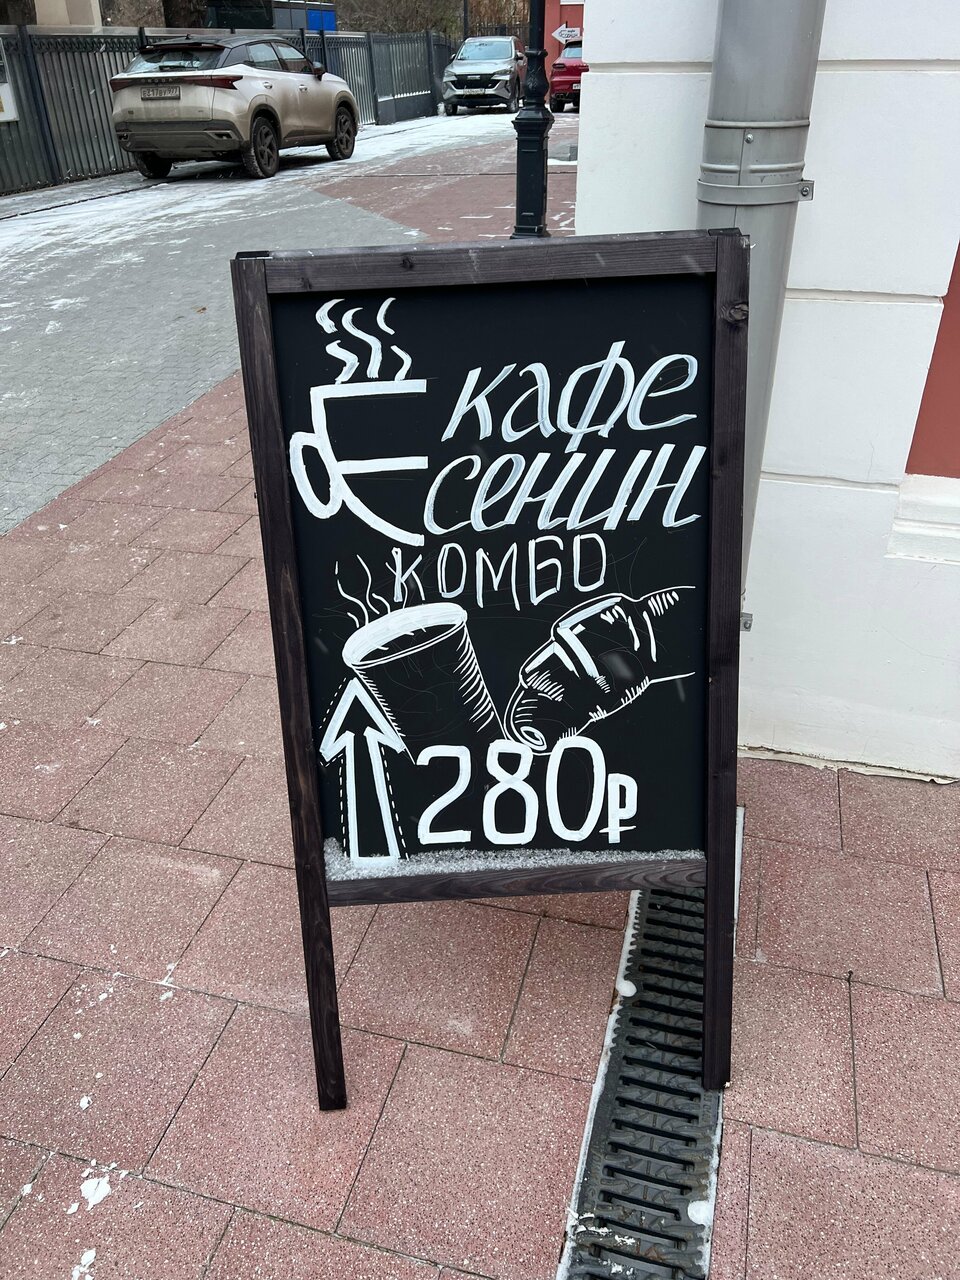 кафе
сенин
комбо
280₽